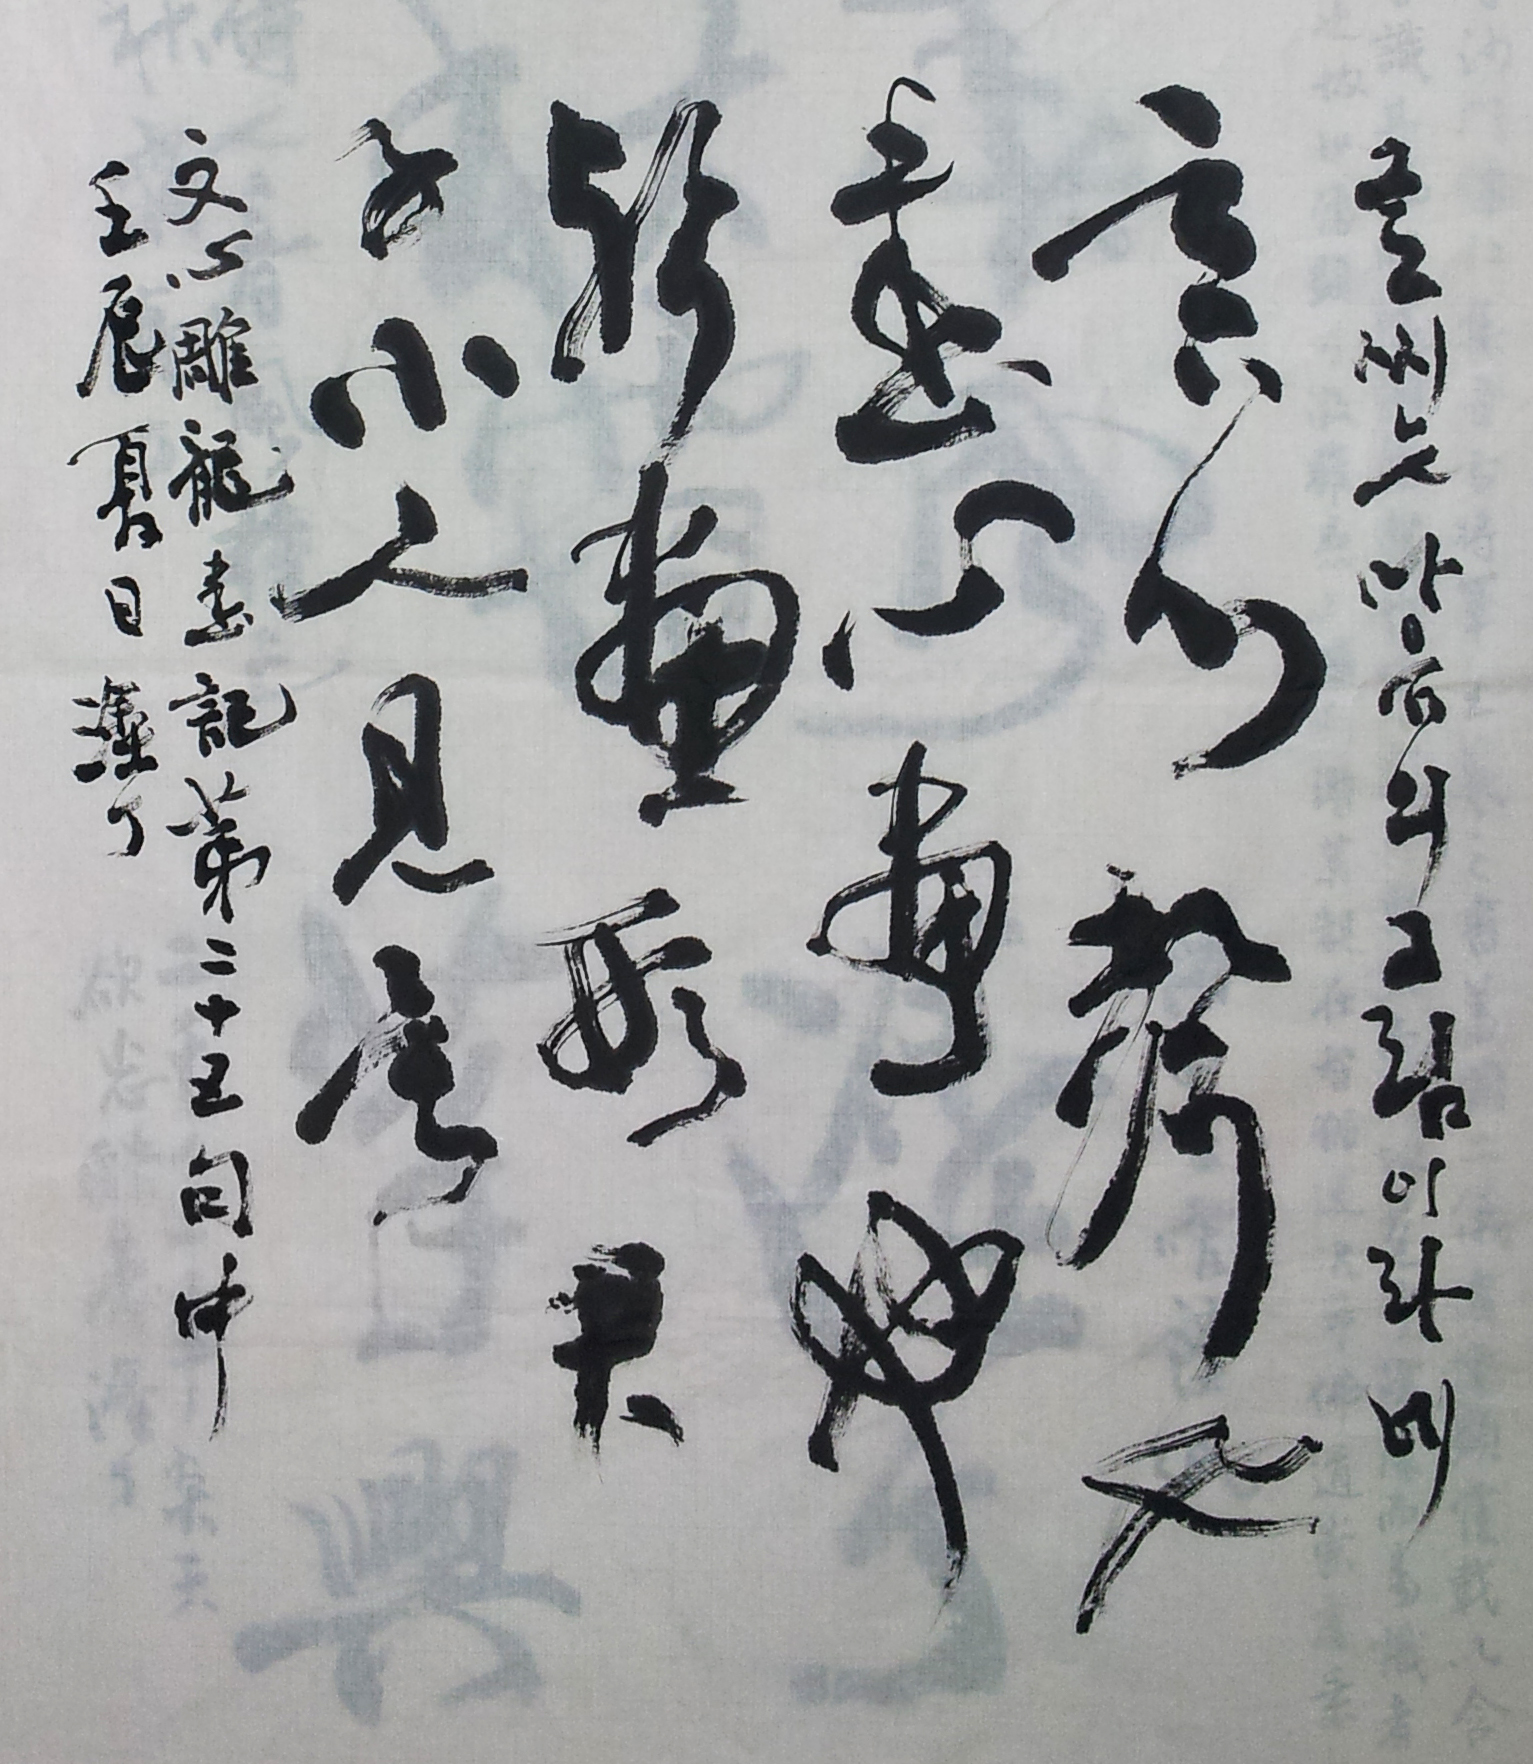 글씨는 마음의 그림이라
言心聲也
書心畫也
聲畫形君
子小人見矣
文心雕龍書記第二十五句中
壬辰夏日